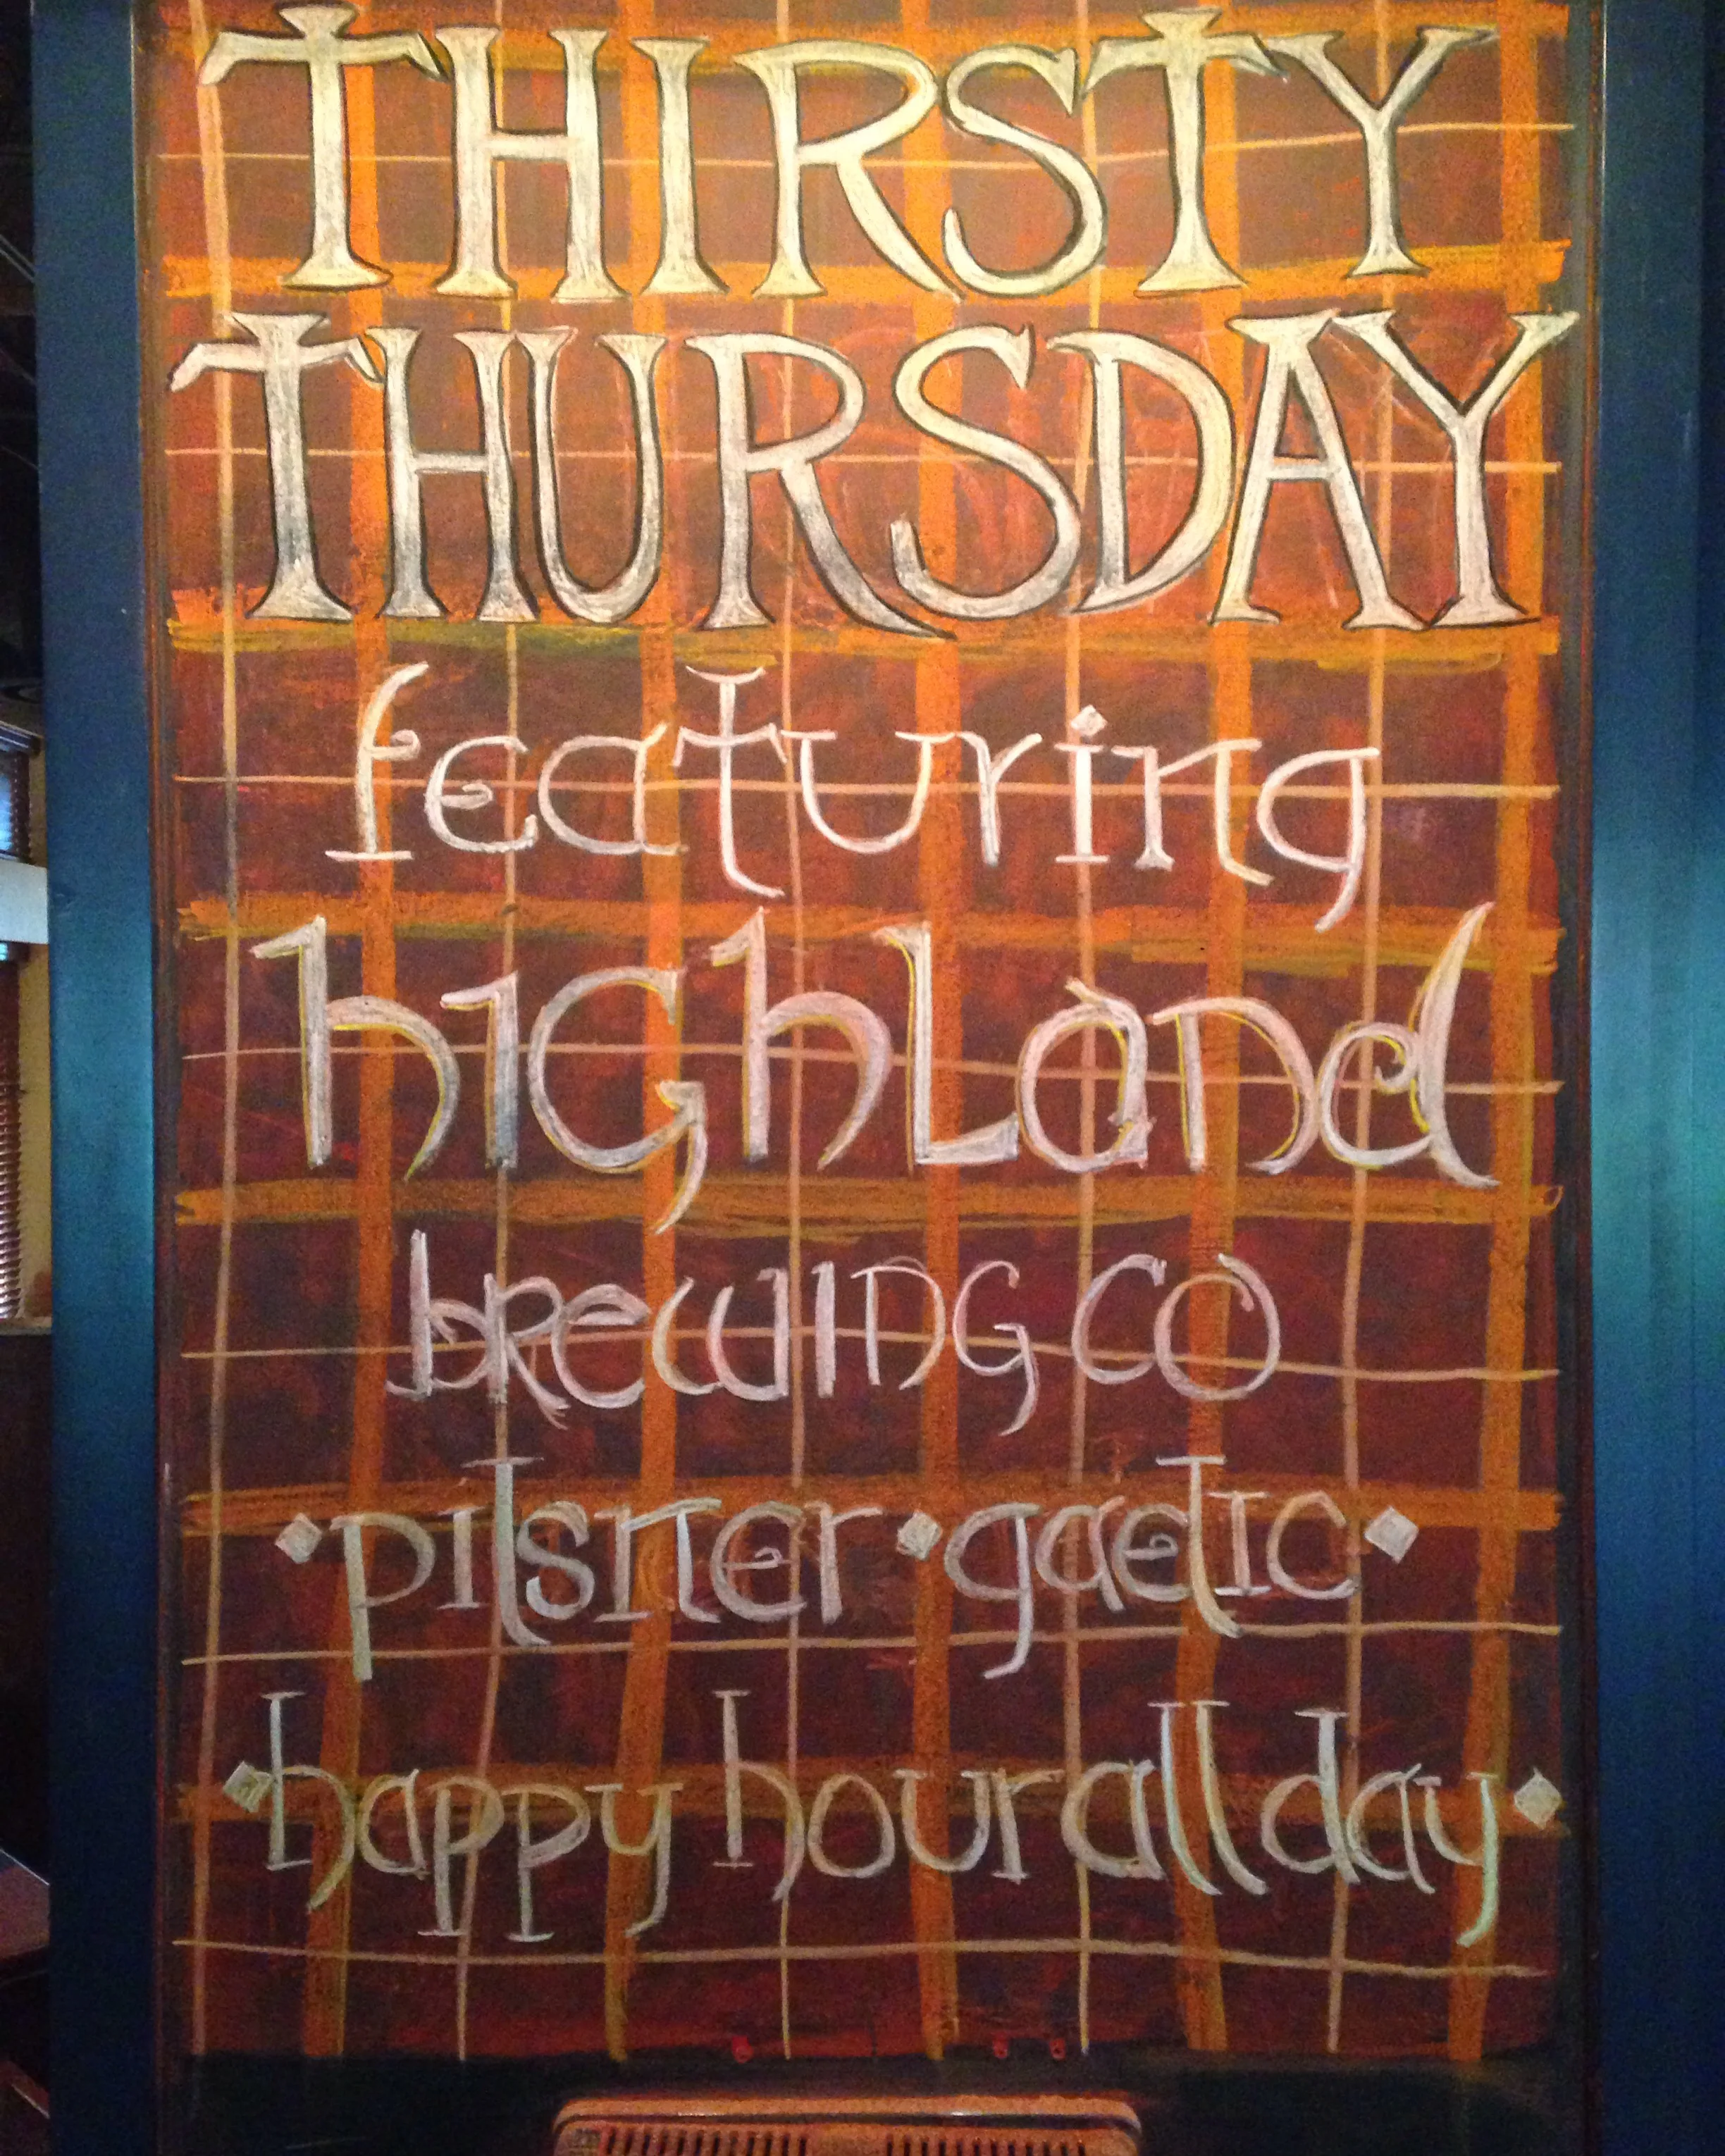 THIRSTY
THURSDAY
featuring
highland
brewing co
•pilsner•gaelic•
•happy hour all day•